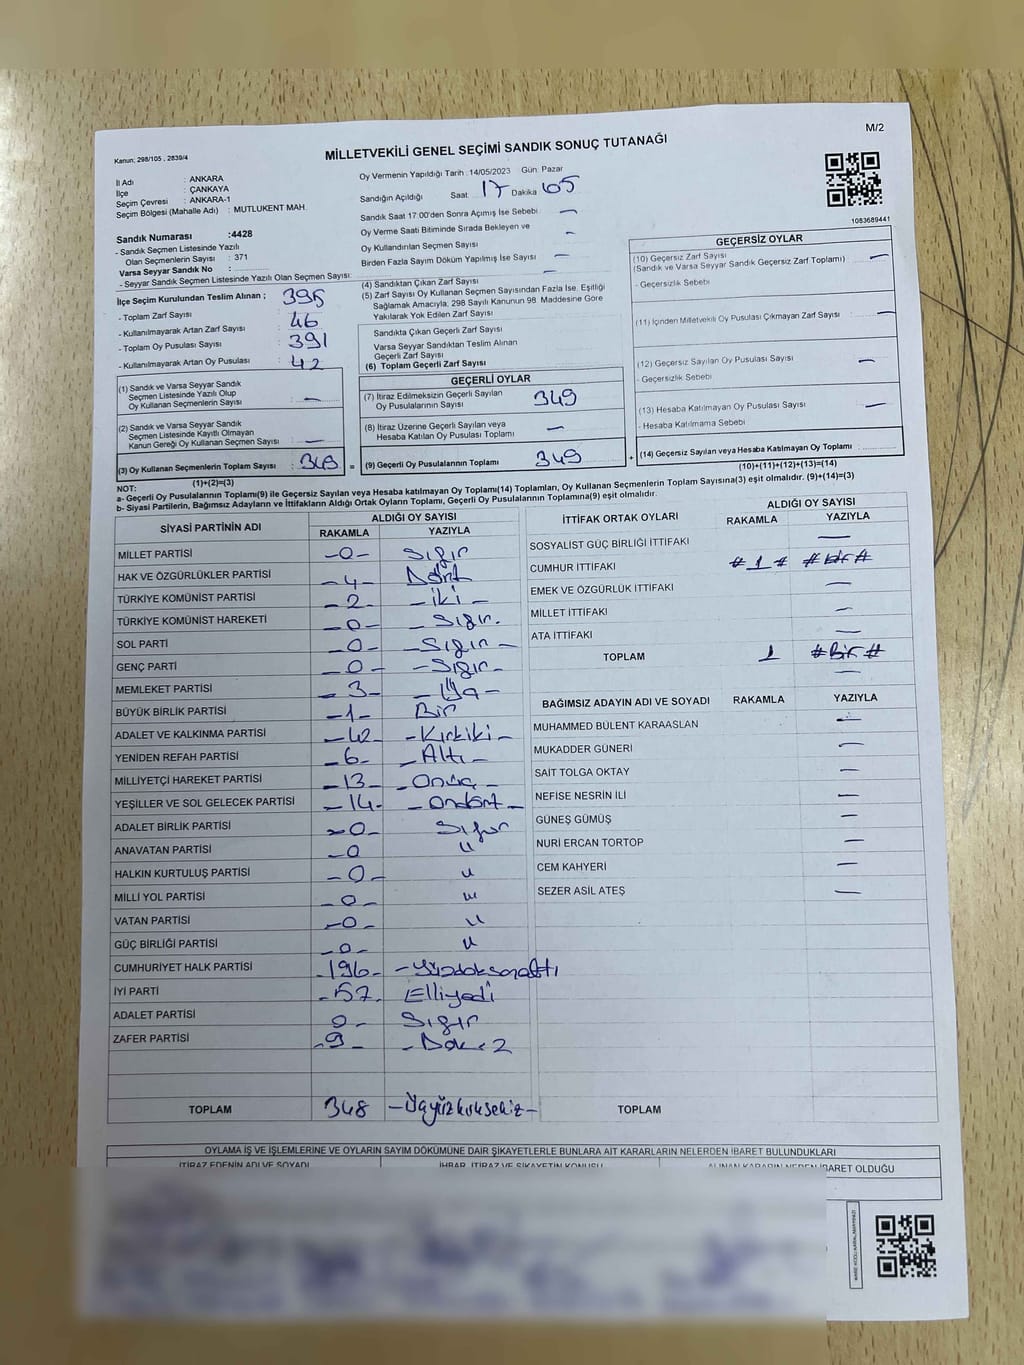 M/2
Kanun: 298/105 , 2839/4
MİLLETVEKİLİ GENEL SEÇİMİ SANDIK SONUÇ TUTANAĞI
İl Adı : ANKARA
İlçe : ÇANKAYA
Seçim Çevresi : ANKARA-1
Seçim Bölgesi (Mahalle Adı) : MUTLUKENT MAH.
Sandık Numarası :4428
- Sandık Seçmen Listesinde Yazılı
Olan Seçmenlerin Sayısı : 371
Varsa Seyyar Sandık No :
- Seyyar Sandık Seçmen Listesinde Yazılı Olan Seçmen Sayısı:
Oy Vermenin Yapıldığı Tarih : 14/05/2023 Gün: Pazar
Sandığın Açıldığı Saat 17 Dakika 05
Sandık Saat 17:00'den Sonra Açımış İse Sebebi —
Oy Verme Saati Bitiminde Sırada Bekleyen ve
Oy Kullandırılan Seçmen Sayısı —
Birden Fazla Sayım Döküm Yapılmış İse Sayısı —
1083689441
İlçe Seçim Kurulundan Teslim Alınan ;
- Toplam Zarf Sayısı : 395
- Kullanılmayarak Artan Zarf Sayısı : 46
- Toplam Oy Pusulası Sayısı : 391
- Kullanılmayarak Artan Oy Pusulası : 42
(1) Sandık ve Varsa Seyyar Sandık
Seçmen Listesinde Yazılı Olup
Oy Kullanan Seçmenlerin Sayısı : —
(2) Sandık ve Varsa Seyyar Sandık
Seçmen Listesinde Kayıtlı Olmayan
Kanun Gereği Oy Kullanan Seçmen Sayısı : —
(3) Oy Kullanan Seçmenlerin Toplam Sayısı : 349 =
(1)+(2)=(3)
(4) Sandıktan Çıkan Zarf Sayısı —
(5) Zarf Sayısı Oy Kullanan Seçmen Sayısından Fazla İse, Eşitliği
Sağlamak Amacıyla, 298 Sayılı Kanunun 98 Maddesine Göre
Yakılarak Yok Edilen Zarf Sayısı
Sandıkta Çıkan Geçerli Zarf Sayısı
Varsa Seyyar Sandıktan Teslim Alınan
Geçerli Zarf Sayısı
(6) Toplam Geçerli Zarf Sayısı
GEÇERLİ OYLAR
(7) İtiraz Edilmeksizin Geçerli Sayılan
Oy Pusulalarının Sayısı 349
(8) İtiraz Üzerine Geçerli Sayılan veya
Hesaba Katılan Oy Pusulası Toplamı —
(9) Geçerli Oy Pusulalarının Toplamı 349 +
GEÇERSİZ OYLAR
(10) Geçersiz Zarf Sayısı —
(Sandık ve Varsa Seyyar Sandık Geçersiz Zarf Toplamı)
- Geçersizlik Sebebi
(11) İçinden Milletvekili Oy Pusulası Çıkmayan Zarf Sayısı : —
(12) Geçersiz Sayılan Oy Pusulası Sayısı : —
- Geçersizlik Sebebi
(13) Hesaba Katılmayan Oy Pusulası Sayısı : —
- Hesaba Katılmama Sebebi
(14) Geçersiz Sayılan veya Hesaba Katılmayan Oy Toplamı
(10)+(11)+(12)+(13)=(14)
NOT:
a- Geçerli Oy Pusulalarının Toplamı(9) ile Geçersiz Sayılan veya Hesaba katılmayan Oy Toplamı(14) Toplamları, Oy Kullanan Seçmenlerin Toplam Sayısına(3) eşit olmalıdır. (9)+(14)=(3)
b- Siyasi Partilerin, Bağımsız Adayların ve İttifakların Aldığı Ortak Oyların Toplamı, Geçerli Oy Pusulalarının Toplamına(9) eşit olmalıdır.
SİYASİ PARTİNİN ADI ALDIĞI OY SAYISI
RAKAMLA YAZIYLA
MİLLET PARTİSİ -0- Sıfır
HAK VE ÖZGÜRLÜKLER PARTİSİ -4- Dört
TÜRKİYE KOMÜNİST PARTİSİ -2- -iki-
TÜRKİYE KOMÜNİST HAREKETİ -0- -Sıfır.
SOL PARTİ -0- -Sıfır-
GENÇ PARTİ -0- -Sıfır-
MEMLEKET PARTİSİ -3- -Üç-
BÜYÜK BİRLİK PARTİSİ -1- Bir
ADALET VE KALKINMA PARTİSİ -42- -Kırkiki-
YENİDEN REFAH PARTİSİ -6- -Altı-
MİLLİYETÇİ HAREKET PARTİSİ -13- -Onüç-
YEŞİLLER VE SOL GELECEK PARTİSİ -14- -ondört-
ADALET BİRLİK PARTİSİ -0- Sıfır
ANAVATAN PARTİSİ -0 "
HALKIN KURTULUŞ PARTİSİ -0- "
MİLLİ YOL PARTİSİ -0- "
VATAN PARTİSİ -0- "
GÜÇ BİRLİĞİ PARTİSİ -0- "
CUMHURİYET HALK PARTİSİ -196- -Yüzdoksanaltı
İYİ PARTİ -57- Elliyedi
ADALET PARTİSİ 0- Sıfır
ZAFER PARTİSİ -9- -Dokuz
TOPLAM 348 -Üçyüzkırksekiz-
İTTİFAK ORTAK OYLARI ALDIĞI OY SAYISI
RAKAMLA YAZIYLA
SOSYALİST GÜÇ BİRLİĞİ İTTİFAKI —
CUMHUR İTTİFAKI #1# #bir#
EMEK VE ÖZGÜRLÜK İTTİFAKI —
MİLLET İTTİFAKI —
ATA İTTİFAKI —
TOPLAM 1 #Bir#
BAĞIMSIZ ADAYIN ADI VE SOYADI RAKAMLA YAZIYLA
MUHAMMED BÜLENT KARAASLAN —
MUKADDER GÜNERİ —
SAİT TOLGA OKTAY —
NEFİSE NESRİN İLİ —
GÜNEŞ GÜMÜŞ —
NURİ ERCAN TORTOP —
CEM KAHYERİ —
SEZER ASİL ATEŞ —
TOPLAM
OYLAMA İŞ VE İŞLEMLERİNE VE OYLARIN SAYIM DÖKÜMÜNE DAİR ŞİKAYETLERLE BUNLARA AİT KARARLARIN NELERDEN İBARET BULUNDUKLARI
İTİRAZ EDENİN ADI VE SOYADI İHBAR, İTİRAZ VE ŞİKAYETİN KONUSU ALINAN KARARIN NEDEN İBARET OLDUĞU